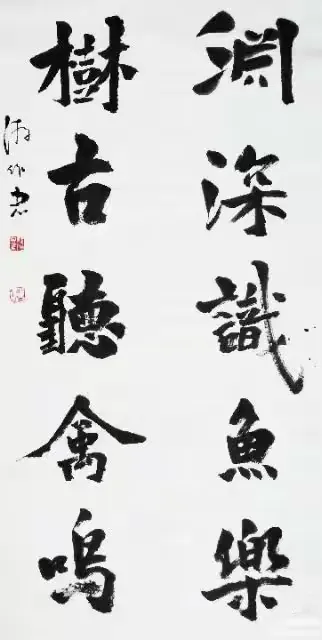 淵深識魚樂
樹古聽禽鳴